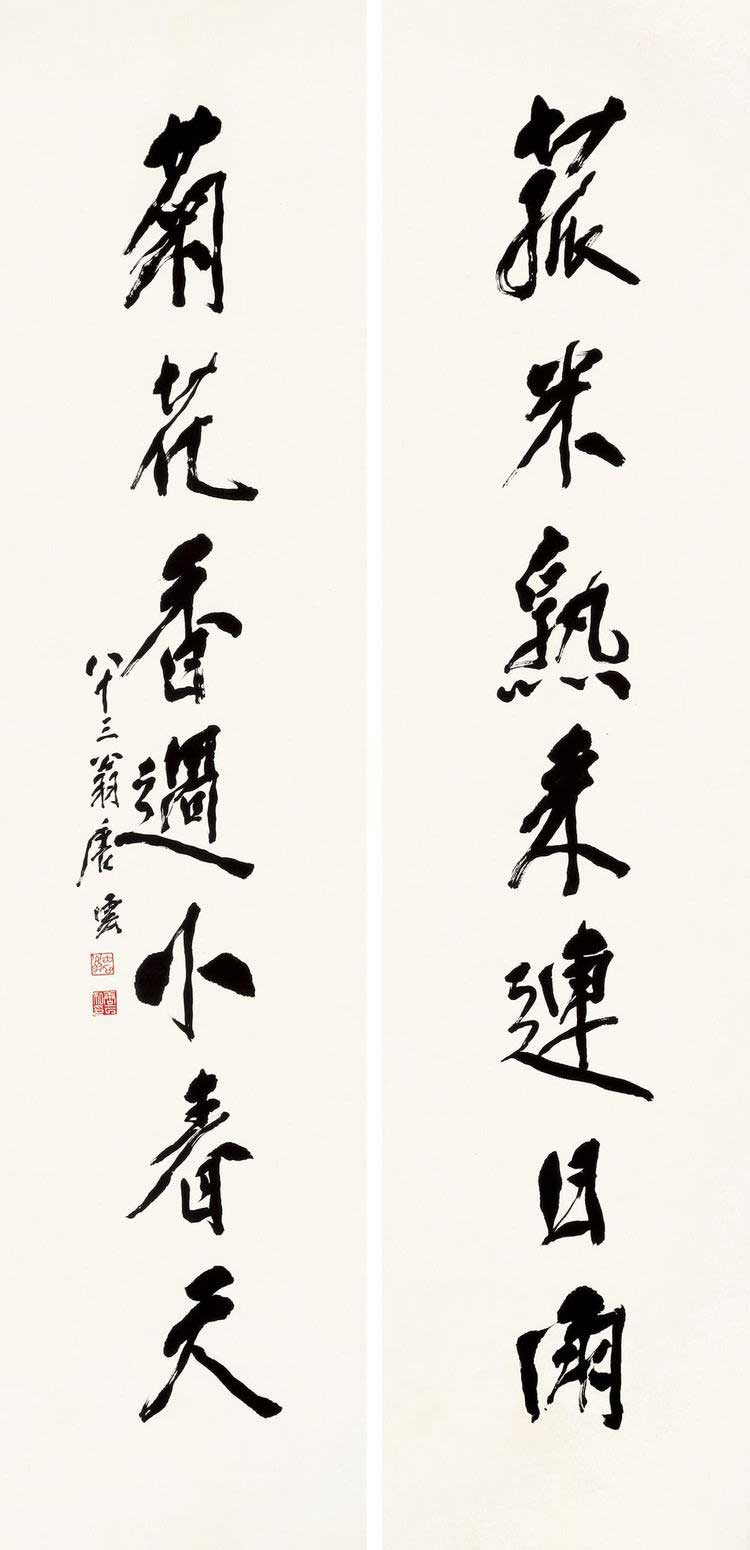 菰米熟来連日雨
菊花香過小春天
八十三翁唐雲